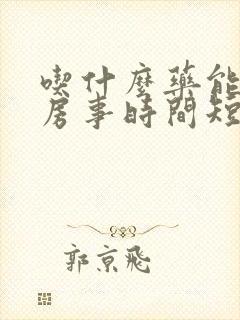 喫什麼藥能
房事時間短
郭京飛